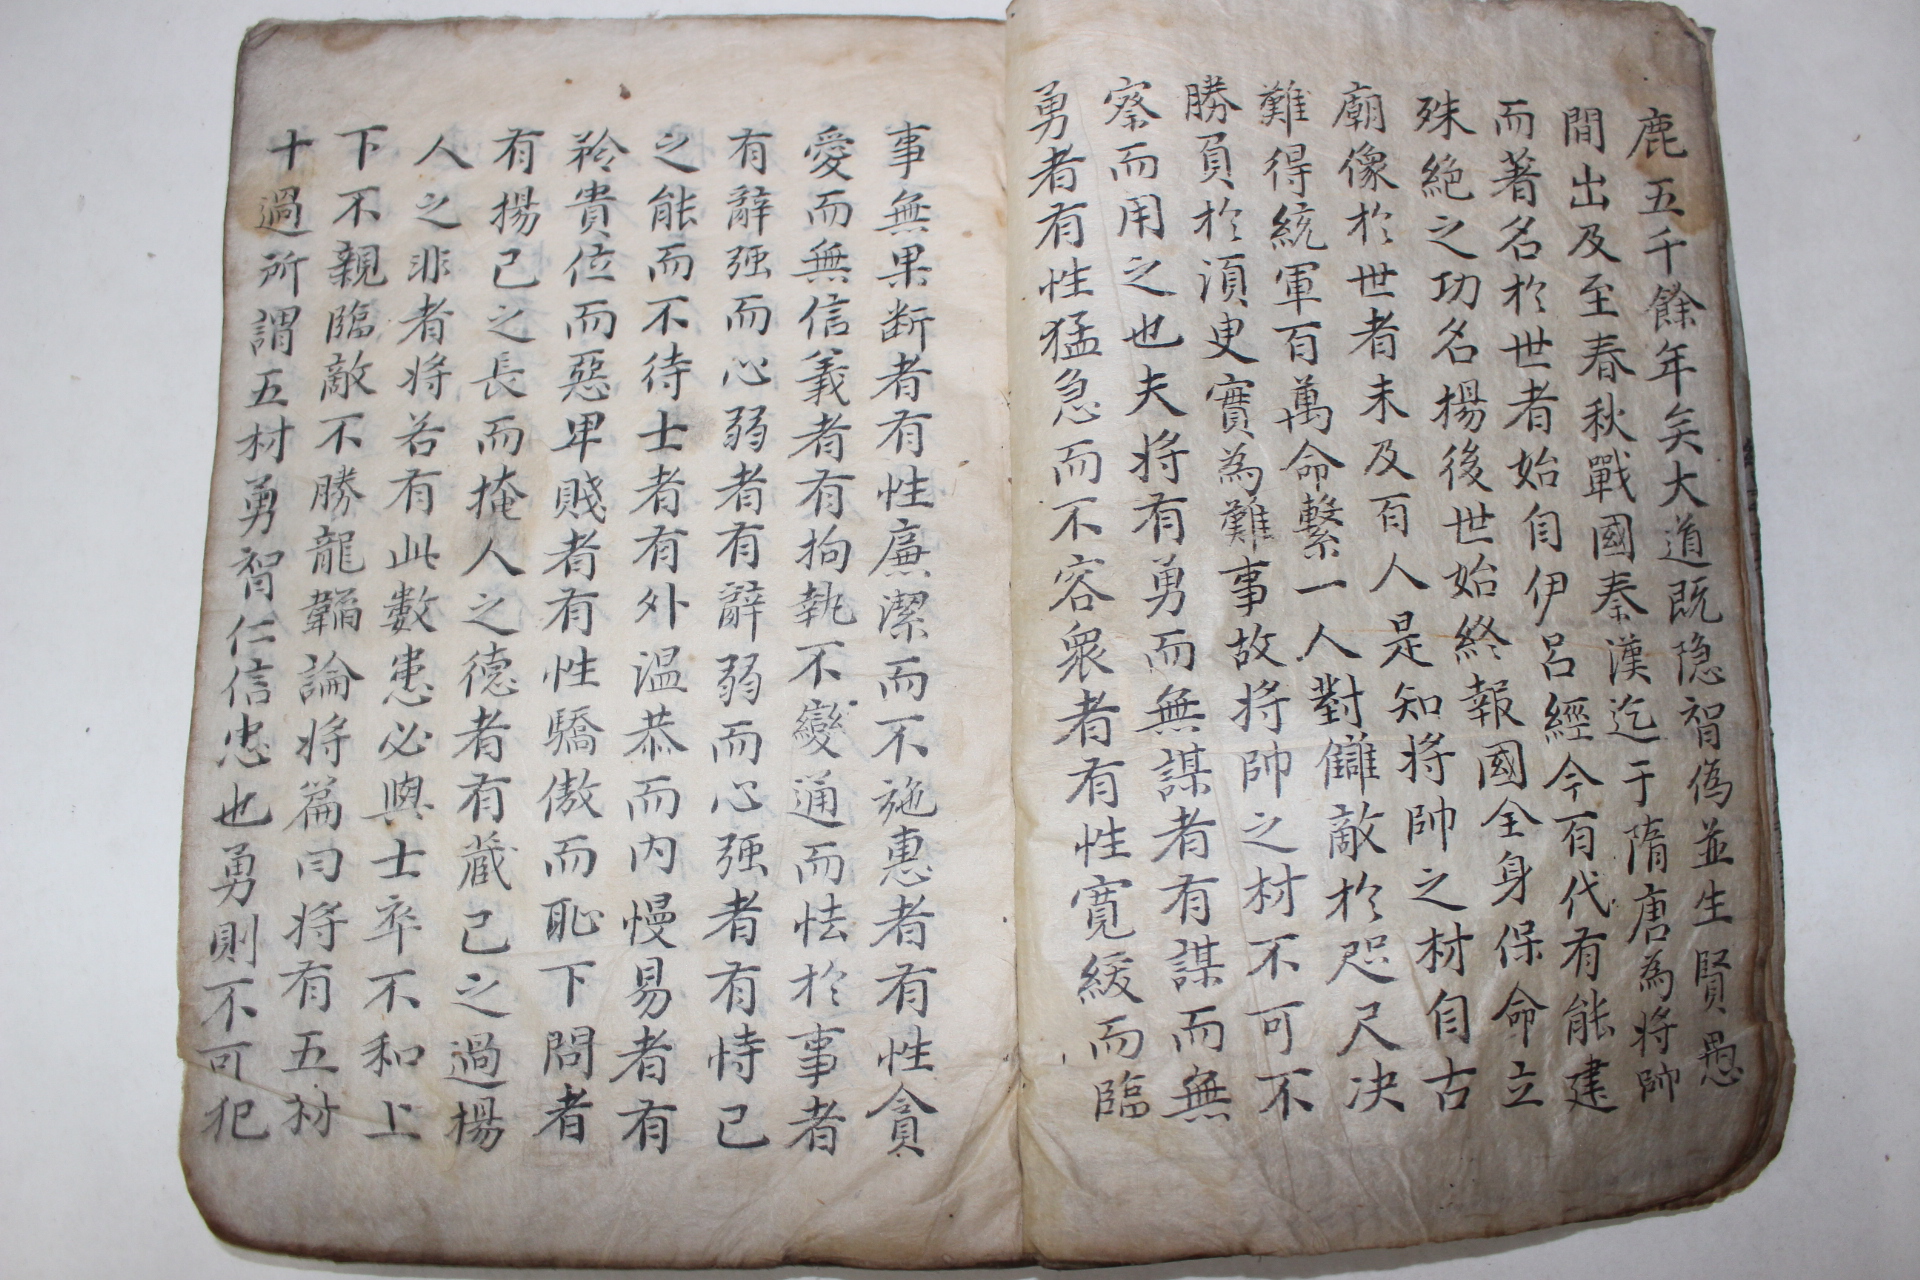 鹿五千餘年矣大道既隐智偽並生賢愚
間出及至春秋戰國秦漢迄于隋唐為將帥
而著名於世者始自伊呂經今百代有能建
殊絶之功名揚後世始終報國全身保命立
廟像於世者未及百人是知將帥之材自古
難得統軍百萬命繫一人對讎敵於咫尺决
勝負於湏臾實為難事故將帥之材不可不
察而用之也夫將有勇而無謀者有謀而無
勇者有性猛急而不容衆者有性寬緩而臨
事無果断者有性廉潔而不施惠者有性貪
愛而無信義者有拘執不變通而怯於事者
有辭强而心弱者有辭弱而心强者有恃己
之能而不待士者有外温恭而内慢易者有
矜貴位而惡卑賤者有性驕傲而恥下問者
有揚己之長而掩人之德者有蔵己之過揚
人之非者將若有此數患必與士卒不和上
下不親臨敵不勝龍韜論將篇曰將有五材
十過所謂五材勇智仁信忠也勇則不可犯